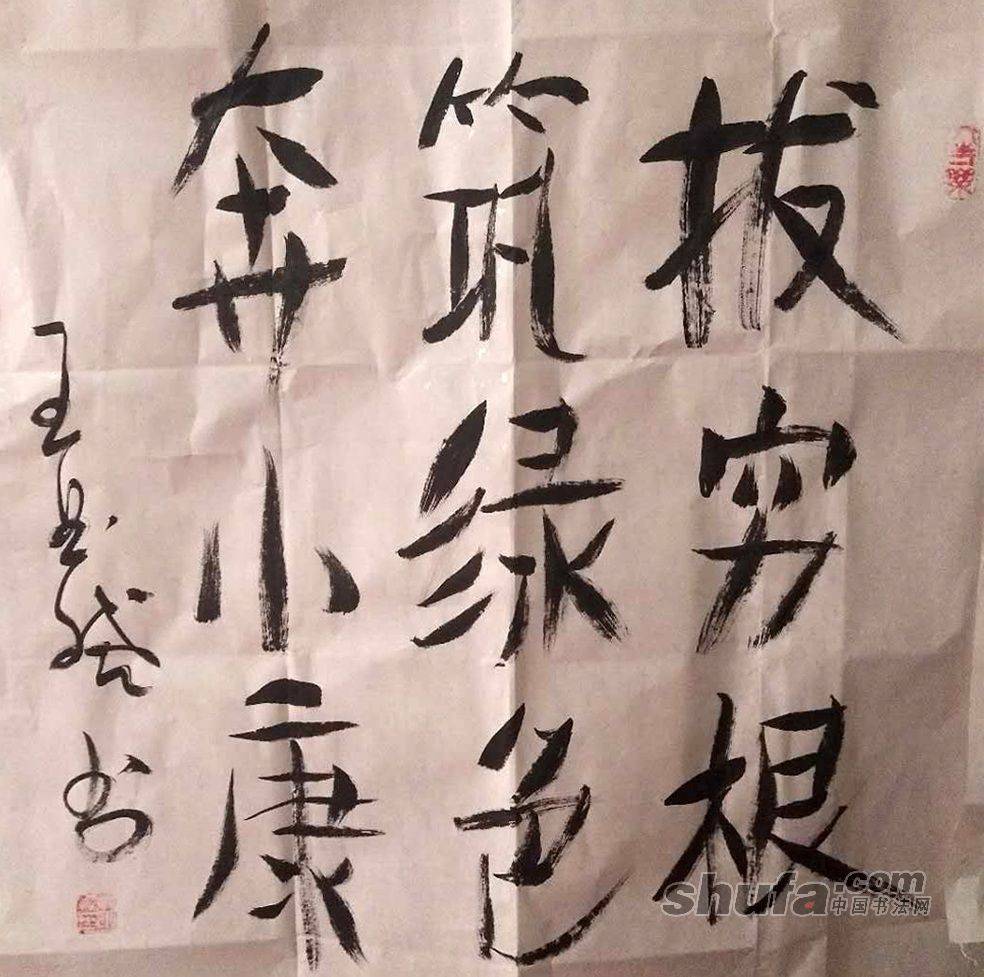 拔穷根
筑绿色
奔小康
王
书
shufa.com
中国书法网